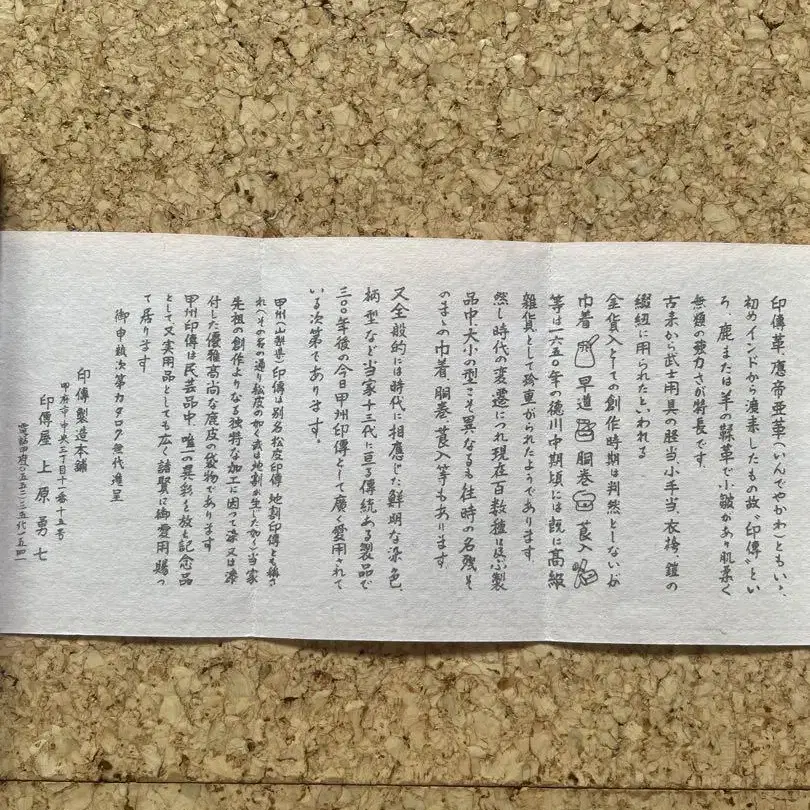 印傳革、應帝亜革(いんでやかわ)ともいゝ、
初めインドから渡来したもの故〝印傳〟とい
ろ、鹿または羊の鞣革で小皺があり肌柔く
無類の強力さが特長です。
古来から武士用具の胫当小手当、衣袴、鎧の
綴紐に用られたといわれる
金貨入としての創作時期は判然としないが
巾着 早道 胴巻 莨入
等は一六五〇年の徳川中期頃には既に高級
雑貨として珍重がられたようであります。
然し時代の変遷につれ現在百数種に及ぶ製
品中大小の型こそ異なるも往時の名残そ
のまゝの巾着、胴巻、莨入等もあります。
又全般的には時代に相應じた鮮明な染色、
柄型など当家十三代に亘る傳統ある製品で
三〇〇年後の今日甲州印傳として廣く愛用されて
いる次第であります。
甲州(山梨縣)印傳は別名松皮印傳、地割印傳とも稱さ
れ(その名の通り松皮の如く或は地割が生じた如く)当家
先祖の創作よりなる独特な加工に因って漆又は漆
付した優雅高尚な鹿皮の袋物であります
甲州印傳は民芸品中、唯一の異彩を放ち記念品
として又実用品としても広く諸賢に御愛用賜っ
て居ります
御申越次第カタログ無代進呈
印傳製造本舗
甲府市中央三丁目十一番十五号
印傳屋 上原勇七
電話甲府〇五五二ー三五代一五四一